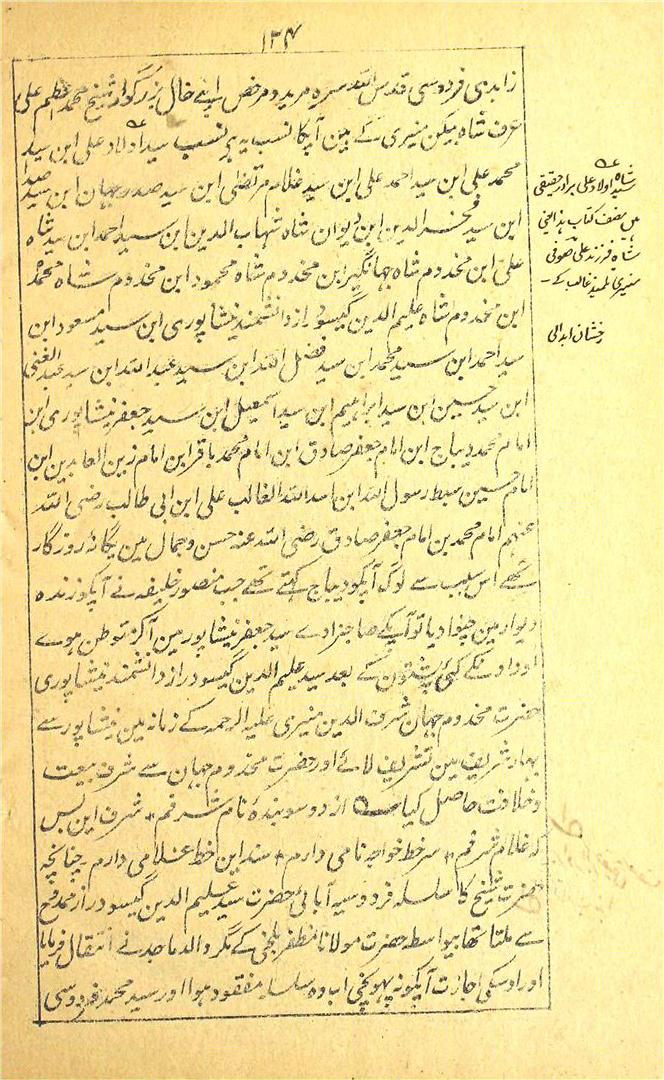 ۱۳۴
زاہدی فردوسی قدس اللہ سرہ مرید و مرخص اپنے خال بزرگوار شیخ محمد اعظم علی
عرف شاہ بیکن منیری کے ہین آپکا نسب یہ ہر نسب سید اولاد علی ابن سید
محمد علی ابن سید احمد علی ابن سید غلام مرتضیٰ ابن سید صدر جہان ابن سید صدا
ابن سید فخر الدین ابن دیوان شاہ شہاب الدین ابن سید احمد ابن سید شاہ
علی ابن مخدوم شاہ جہانگیر ابن مخدوم شاہ محمود ابن مخدوم شاہ محمد
ابن مخدوم شاہ علیم الدین گیسو دراز دانشمند نیشاپوری ابن سید مسعود ابن
سید احمد ابن سید محمد ابن سید فضل اللہ ابن سید عبد اللہ ابن سید عبد الغنی
ابن سید حسین ابن سید ابراہیم ابن سید اسمعیل ابن سید جعفر نیشاپوری ابن
امام محمد دیباج ابن امام جعفر صادق ابن امام محمد باقر ابن امام زین العابدین ابن
امام حسین سبط رسول اللہ ابن اسد اللہ الغالب علی ابن ابی طالب رضی اللہ
عنہم امام محمد بن امام جعفر صادق رضی اللہ عنہ حسن و جمال مین یگانہ روزگار
تھے اس سبب سے لوگ آپکو دیباج کہتے تھے جب منصور خلیفہ نے آپکو زندہ
دیوار مین چنوا دیا تو آپکے صاحبزادے سید جعفر نیشاپور مین آکر توطن ہوے
اور اونکے کئی پشتون کے بعد سید علیم الدین گیسو دراز دانشمند نیشاپوری
حضرت مخدوم جہان شرف الدین منیری علیہ الرحمہ کے زمانہ مین نیشاپور سے
بہار شریف مین تشریف لائے اور حضرت مخدوم جہان سے شرف بیعت
و خلافت حاصل کیا از دو سو بندۂ نام شرفم * شرف این بس
کہ غلام شرفم * سر خط خواجہ نامی دارم * سند این خط غلامی دارم چنانچہ
حضرت شیخ کا سلسلہ فردوسیہ آبائی حضرت سید علیم الدین گیسو دراز ممدوح
سے ملتا تھا بیواسطہ حضرت مولانا مظفر بلخی کے مگر والد ماجد نے انتقال فرمایا
اور اوسکی اجازت آپکو نہ پہونچی اب وہ سلسلہ مفقود ہوا اور سید محمد فردوسی
سید شاہ اولاد علی برادر حقیقی
ہیں مصنف کتاب ہذا یعنی
شاہ فرزند علی صوفی
منیری تلمیذ غالب کے۔
رخشان ابدالی